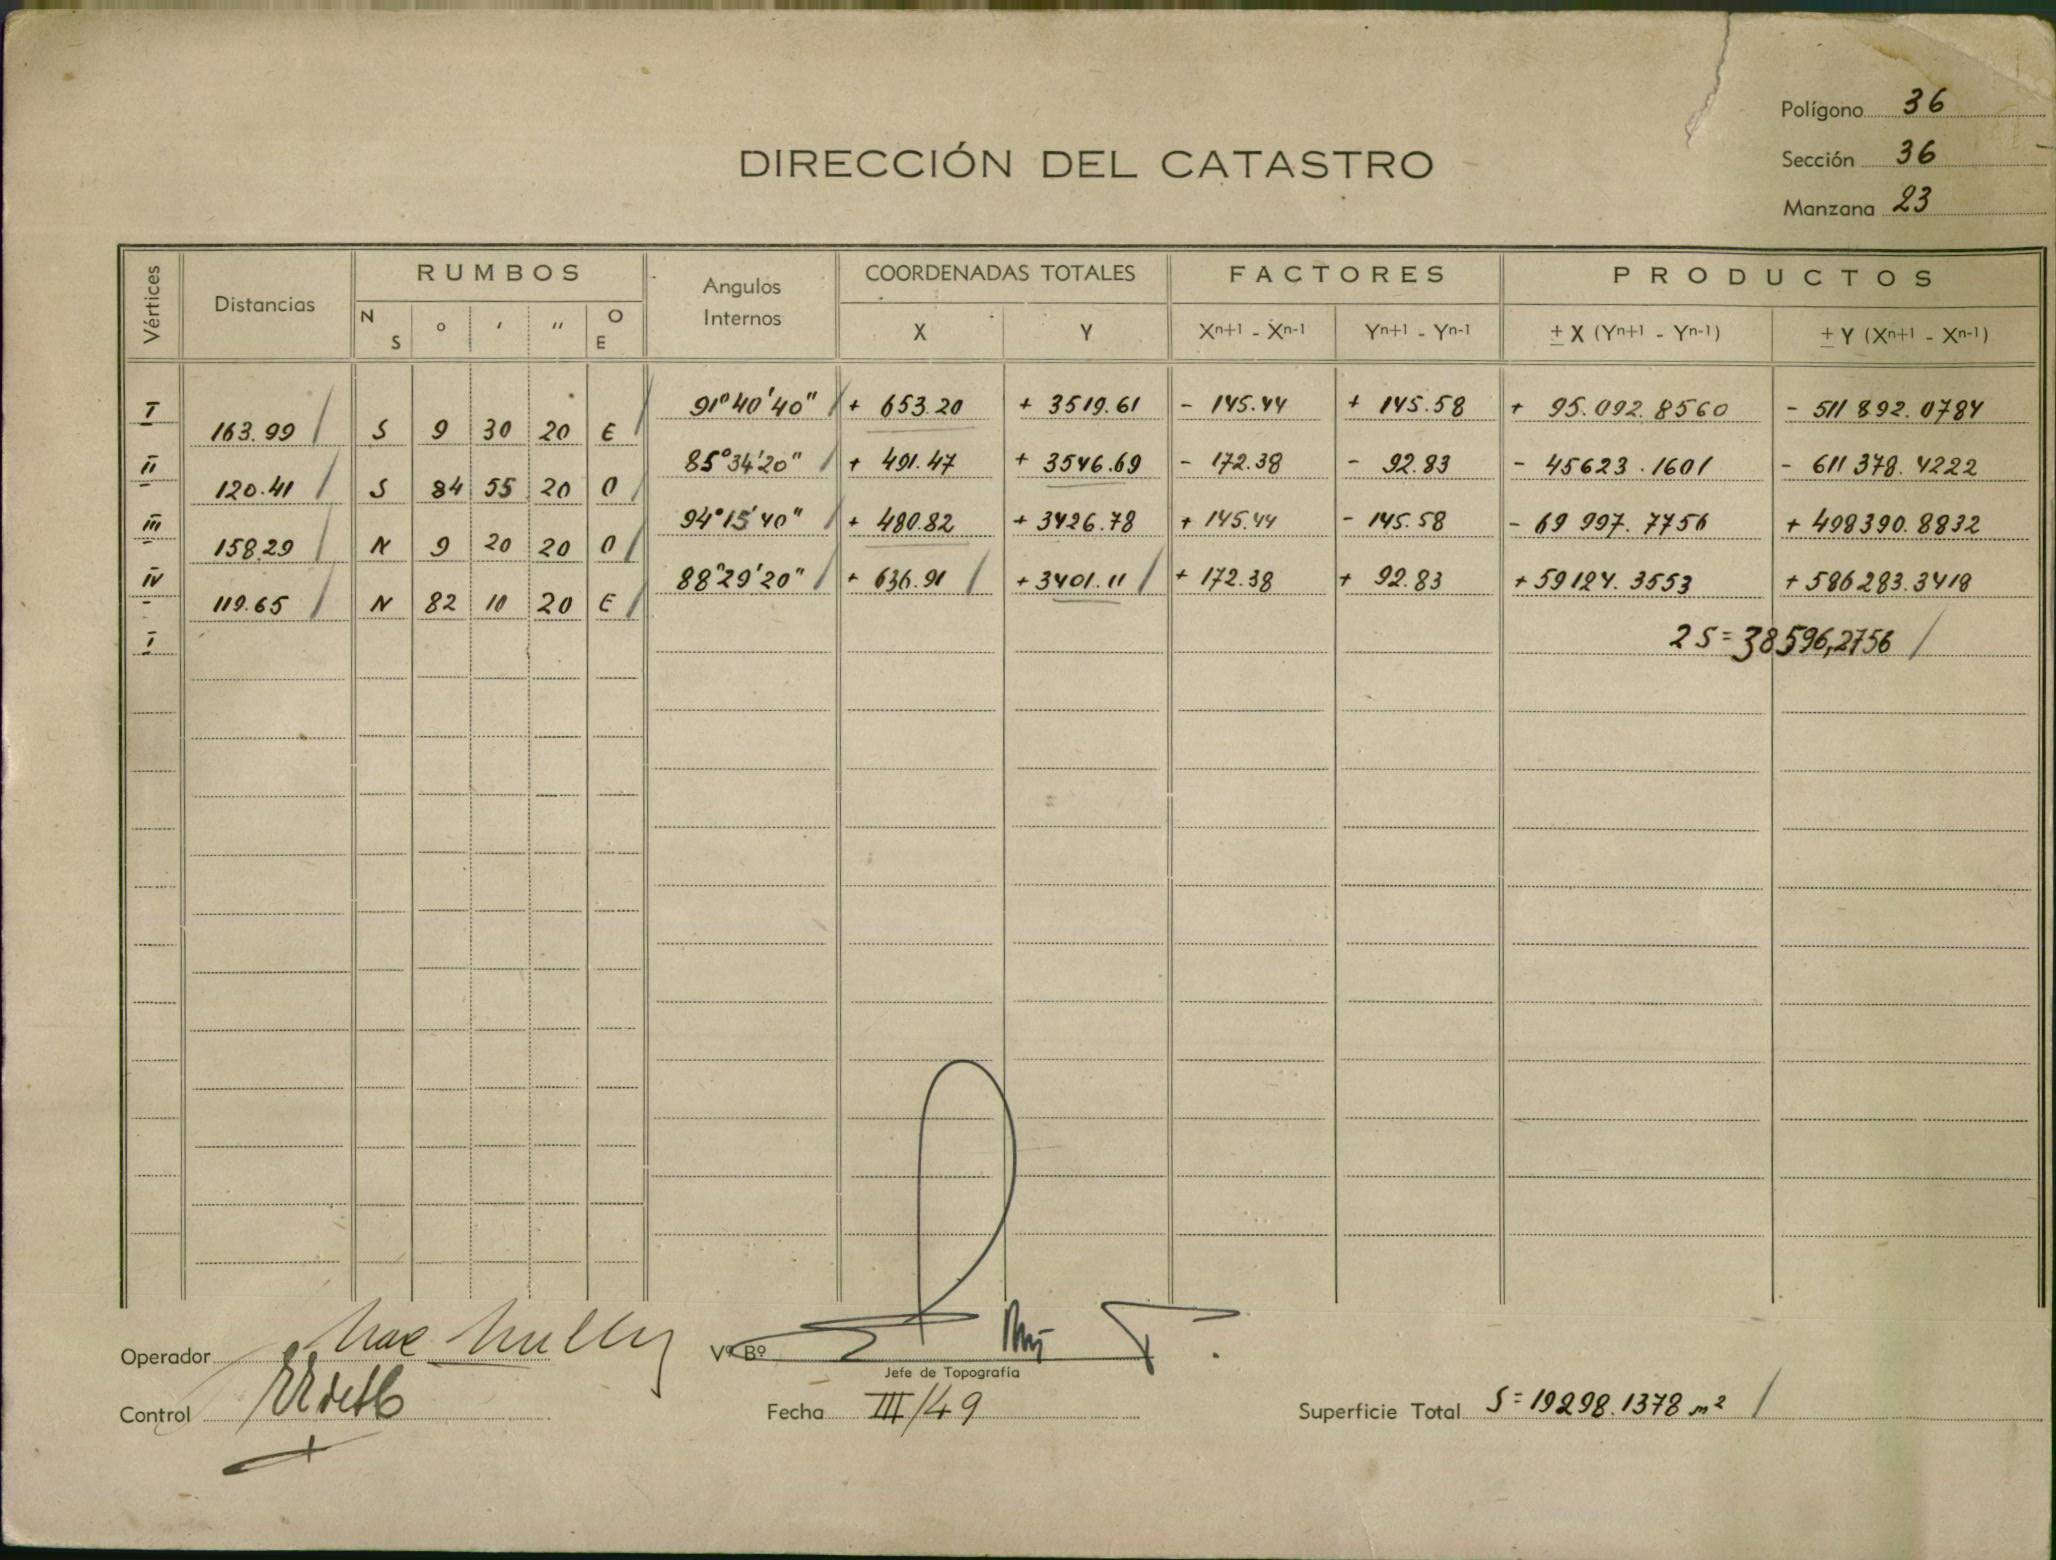 Polígono 36
Sección 36
Manzana 23
DIRECCIÓN DEL CATASTRO
Vértices Distancias RUMBOS Angulos Internos COORDENADAS TOTALES FACTORES PRODUCTOS
N S o ' '' O E X Y Xn+1 - Xn-1 Yn+1 - Yn-1 ± X (Yn+1 - Yn-1) ± Y (Xn+1 - Xn-1)
I 91°40'40" + 653.20 + 3519.61 - 145.44 + 145.58 + 95.092.8560 - 511 892.0784
163.99 S 9 30 20 E
II 85°34'20" + 491.47 + 3546.69 - 172.38 - 92.83 - 45623.1601 - 611 378.4222
120.41 S 84 55 20 O
III 94°15'40" + 480.82 + 3426.78 + 145.44 - 145.58 - 69 997.7756 + 498390.8832
158.29 N 9 20 20 O
IV 88°29'20" + 636.91 + 3401.11 + 172.38 + 92.83 + 59124.3553 + 586283.3418
119.65 N 82 10 20 E
I 2 S = 38596,2756
Operador
Vº Bº
Jefe de Topografía
Control
Fecha III/49
Superficie Total S = 19298.1378 m²